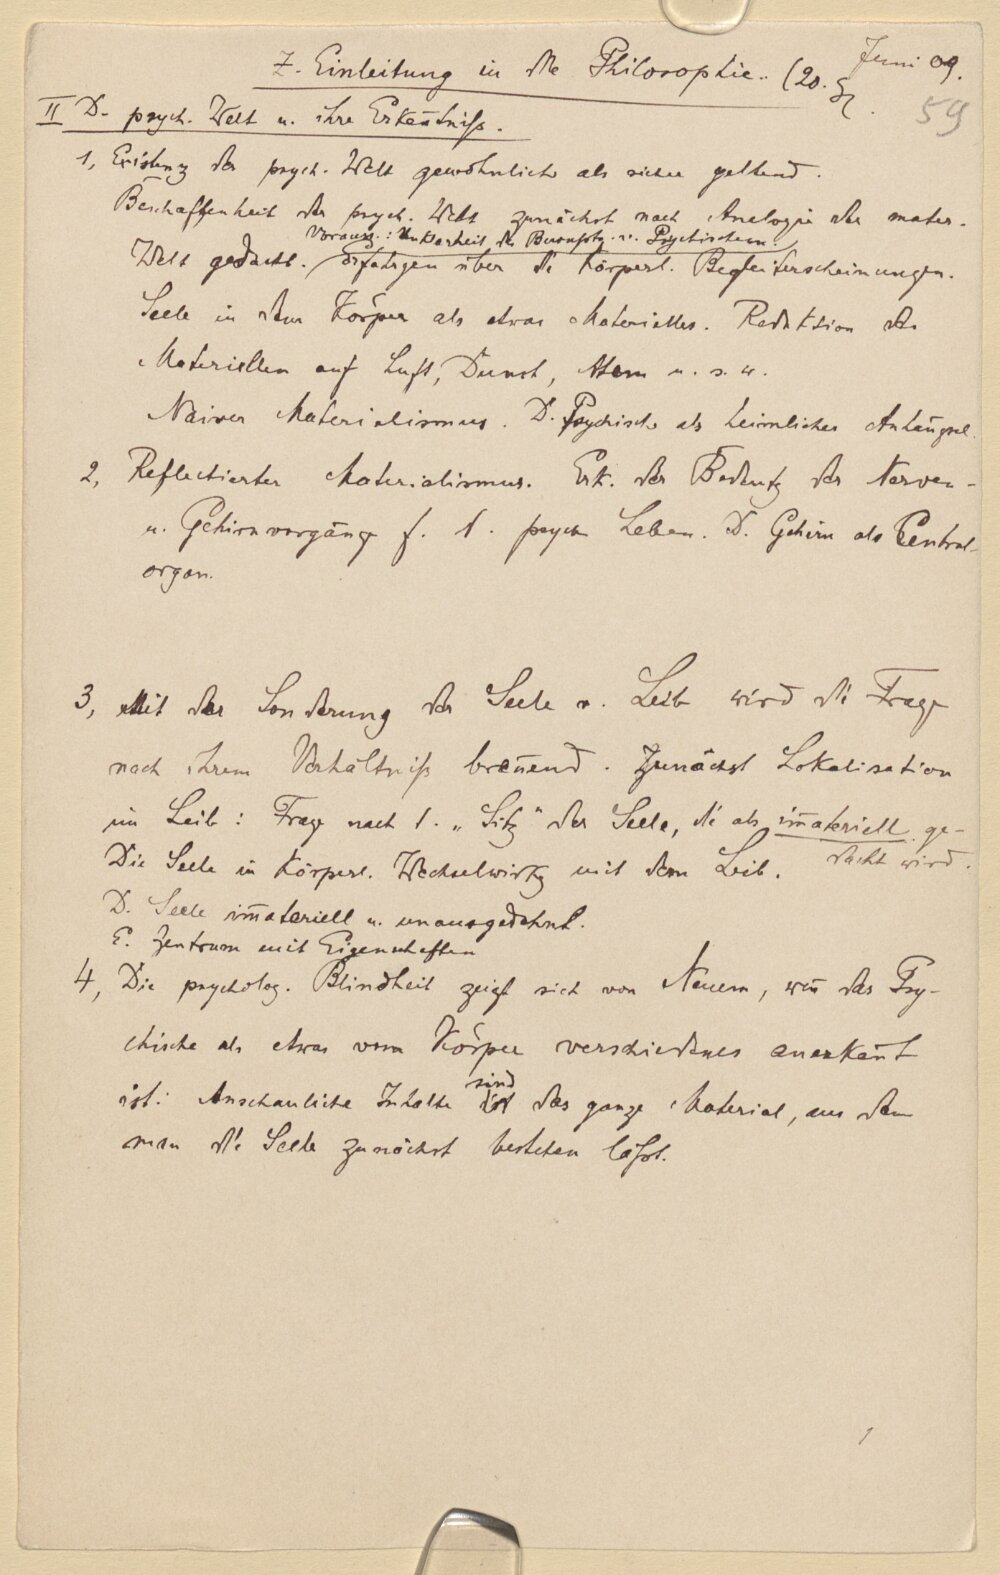 Z. Einleitung in die Philosophie. (20.
Juni 09.
59
II D. psych. Welt u. ihre Erkeñtniß.
1, Existenz der psych. Welt gewöhnlich als sicher geltend.
Beschaffenheit der psych. Welt zunächst nach Analogie der mater.
Vorausz.: Unklarheit des Bewußts. v. Psychischem
Welt gedacht. Erfahrgen über die körperl. Begleiterscheinungen.
Seele in dem Körper als etwas Materielles. Reduktion des
Materiellen auf Luft, Dunst, Atem u. s. w.
Naiver Materialismus. D. Psychische als heimliches Anhängsel.
2, Reflectierter Materialismus. Erk. der Bedeutg der Nerven-
u. Gehirnvorgänge f. d. psych Leben. D. Gehirn als Central-
organ.
3, Mit der Sonderung der Seele v. Leib wird die Frage
nach ihrem Verhältniß breñend. Zunächst Lokalisation
im Leib: Frage nach d. „Sitz" der Seele, die als im̄ateriell ge-
dacht wird.
Die Seele in körperl. Wechselwirkg mit dem Leib.
D. Seele im̄ateriell u. unausgedehnt.
E. Zentrum mit Eigenschaften
4, Die psycholog. Blindheit zeigt sich von Neuem, weñ das Psy-
chische als etwas vom Körper verschiedenes anerkañt
ist: Anschauliche Inhalte sind das ganze Material, aus dem
man die Seele zunächst bestehen läßt.
1